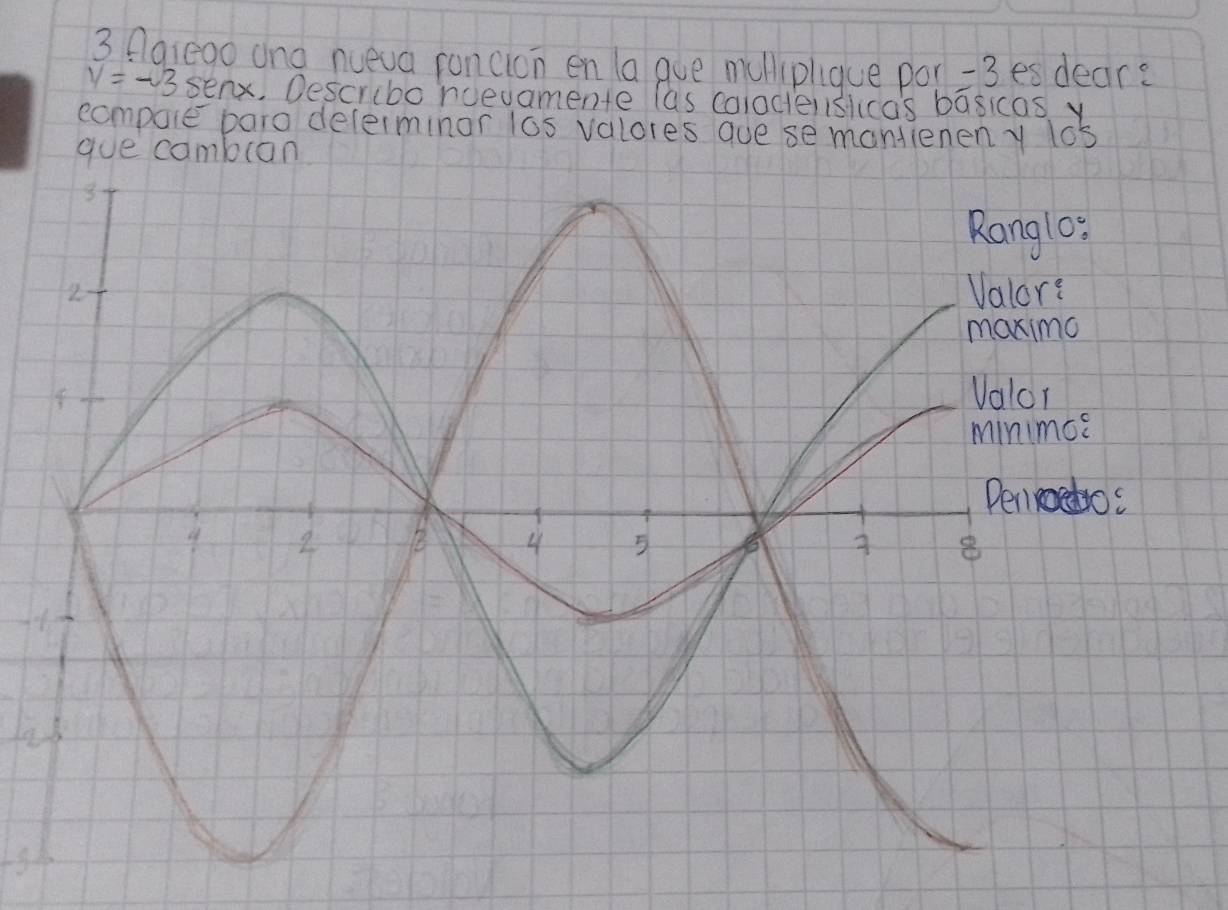 3 Agrego una nueva función en la que multiplique por -3 es decir:
y = -3 senx. Describo nuevamente las características básicas y
compare para determinar los valores que se mantienen y los
que cambian
3
Ranglo:
2
Valor:
maximo
1
Valor
minimo:
Periodo:
1 2 3 4 5 6 7 8
-1
-2
-3